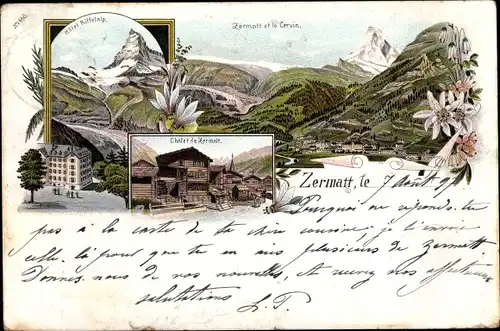 Hôtel Riffelalp.
Zermatt et le Cervin.
Chalet de Zermatt.
Zermatt, le 7 Août 97
Pourquoi ne réponds-tu
pas à la carte de ta chère cousine, je t'envoie
celle-là pour que tu en aies plusieurs de Zermatt
Donnez-nous de vos nouvelles, et recevez nos affectueuses
salutations L. P.